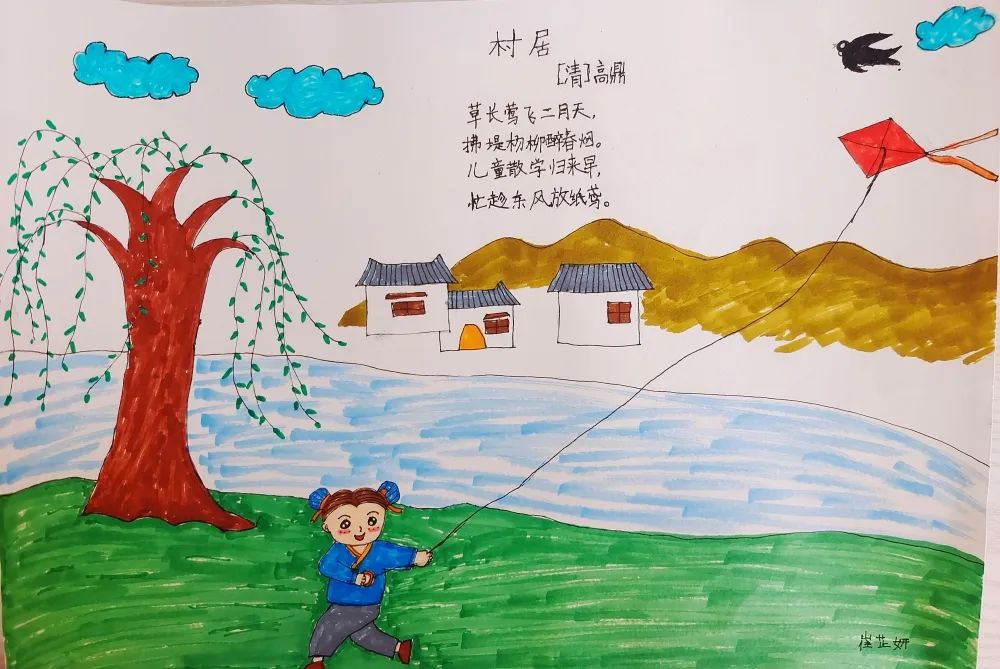 村居
[清]高鼎
草长莺飞二月天，
拂堤杨柳醉春烟。
儿童散学归来早，
忙趁东风放纸鸢。
崔芷妍